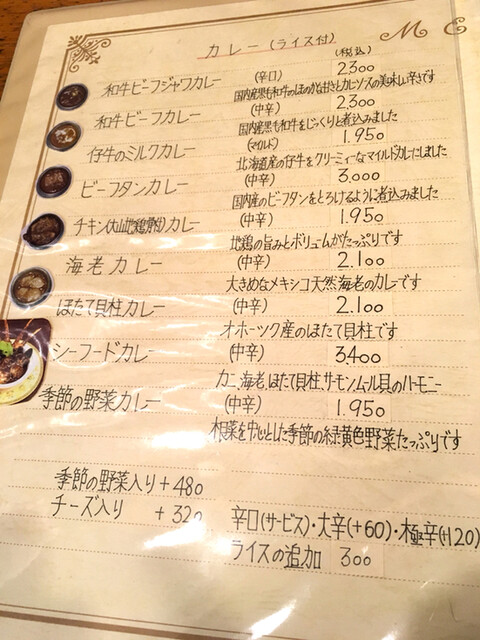 M E
カレー(ライス付) (税込)
和牛ビーフジャワカレー (辛口) 2,300
国内産黒毛和牛のほのかな甘さとカレーソースの美味しい辛さです
和牛ビーフカレー (中辛) 2,300
国内産黒毛和牛をじっくりと煮込みました
仔牛のミルクカレー (マイルド) 1,950
北海道産の仔牛をクリーミィーなマイルドカレーにしました
ビーフタンカレー (中辛) 3,000
国内産のビーフタンをとろけるように煮込みました
チキン(大山地鶏骨付)カレー (中辛) 1,950
地鶏の旨みとボリュームがたっぷりです
海老カレー (中辛) 2,100
大きめなメキシコ天然海老のカレーです
ほたて貝柱カレー (中辛) 2,100
オホーツク産のほたて貝柱です
シーフードカレー (中辛) 3,400
カニ、海老、ほたて貝柱、サーモン、ムール貝のハーモニー
季節の野菜カレー (中辛) 1,950
根菜を中心とした季節の緑黄色野菜たっぷりです
季節の野菜入り +480
チーズ入り +320
辛口(サービス)・大辛(+60)・極辛(+120)
ライスの追加 300